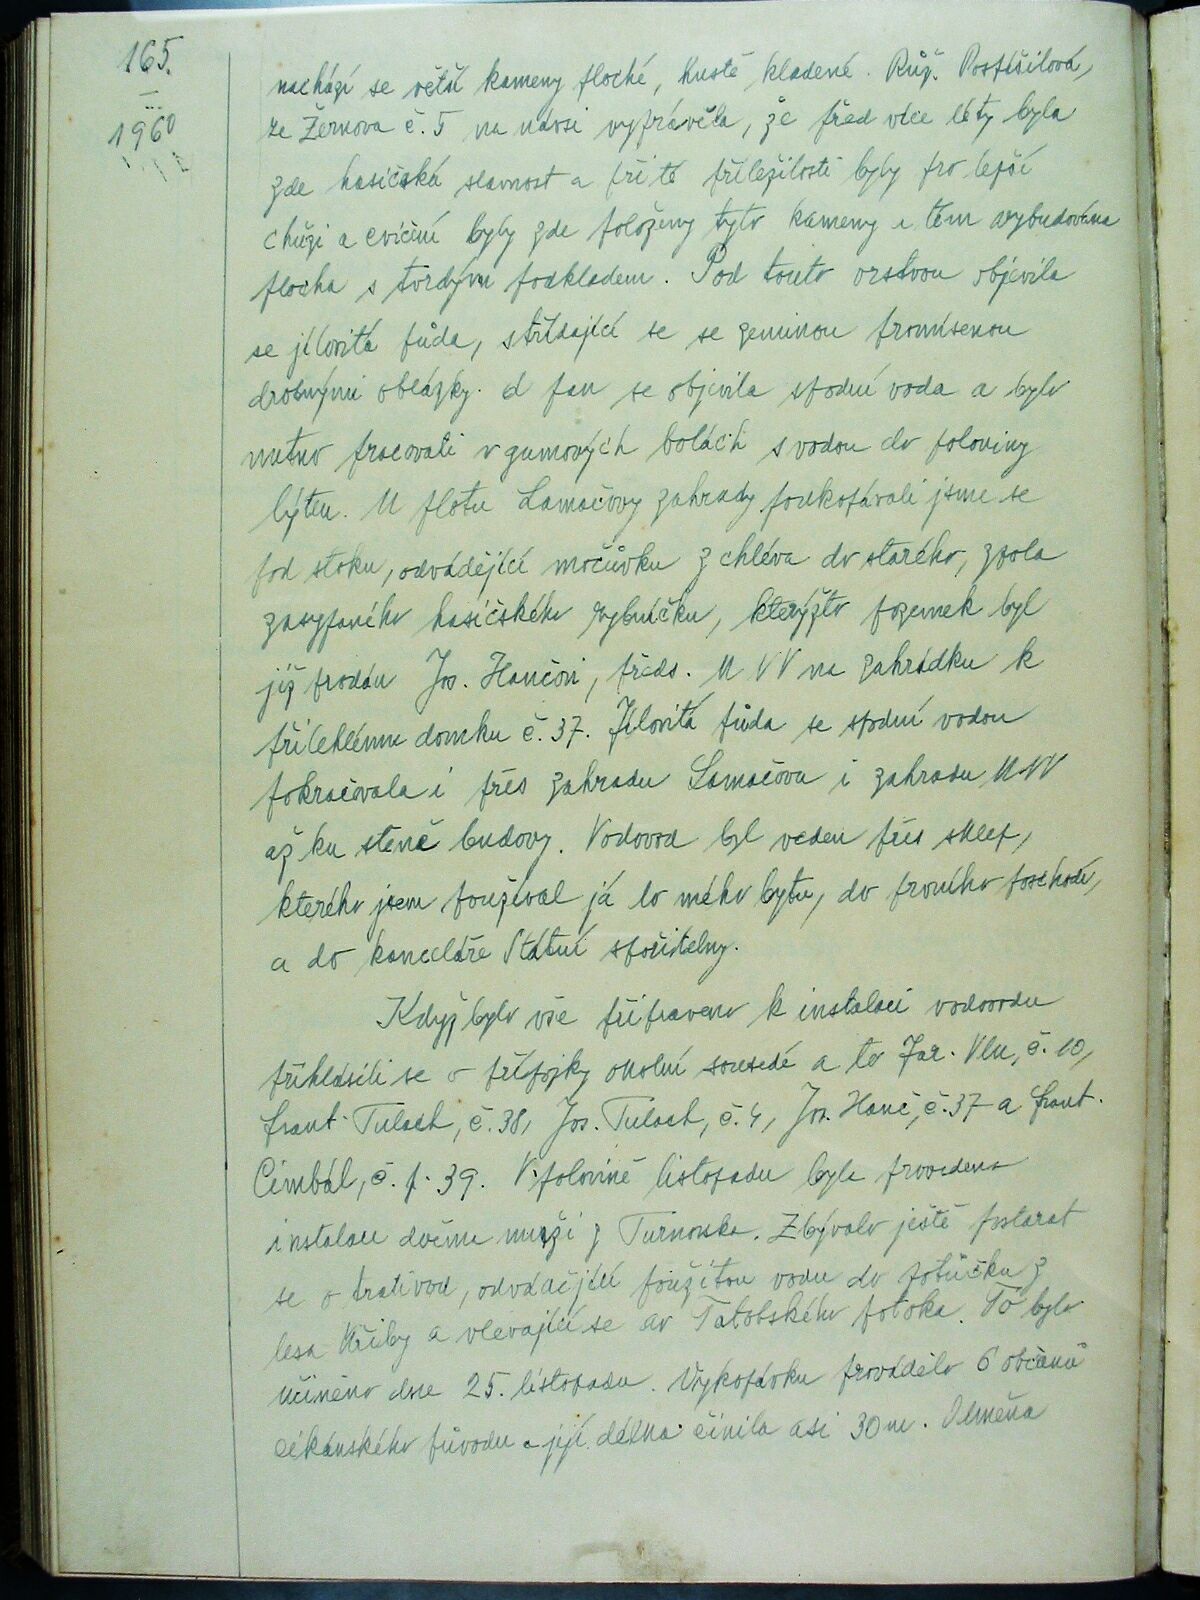 165.
1960
nachází se větší kameny ploché, hustě kladené. Růž. Pospíšilová,
ze Žernova č. 5 na návsi vyprávěla, že před více léty byla
zde hasičská slavnost a při té příležitosti byly pro lepší
chůzi a cvičení byly zde položeny tyto kameny a tím vybudována
plocha s tvrdým podkladem. Pod touto vrstvou objevila
se jílovitá půda, střídající se se zeminou promísenou
drobnými oblázky. I pan se objevila spodní voda a bylo
nutno pracovati v gumových botách s vodou do poloviny
lýtek. U plotu Lamačovy zahrady podkopávali jsme se
pod stoku, odvádějící močůvku z chléva do starého, zpola
zasypaného hasičského rybníčku, kterýžto pozemek byl
již prodán Jos. Hančovi, předs. MNV na zahrádku k
přilehlému domku č. 37. Jílovitá půda se spodní vodou
pokračovala i přes zahradu Lamačovu i zahradu MNV
až ku stěně budovy. Vodovod byl veden přes sklep,
kterého jsem používal já do mého bytu, do prvního poschodí,
a do kanceláře Státní spořitelny.
Když bylo vše připraveno k instalaci vodovodu
přihlásili se o přípojky okolní sousedé a to Jar. Vlk, č. 10,
Frant. Tulach, č. 38, Jos. Tulach, č. 4, Jos. Hanč, č. 37 a Frant.
Cimbál, č. p. 39. V polovině listopadu byla provedena
instalace dvěma muži z Turnovska. Zbývalo ještě postarat
se o trativod, odvádějící použitou vodu do potůčku z
lesa Hřiby a vlévající se do Tatobského potoka. To bylo
učiněno dne 25. listopadu. Výkopávku provádělo 6 občanů
cikánského původu a její délka činila asi 30 m. Odměna